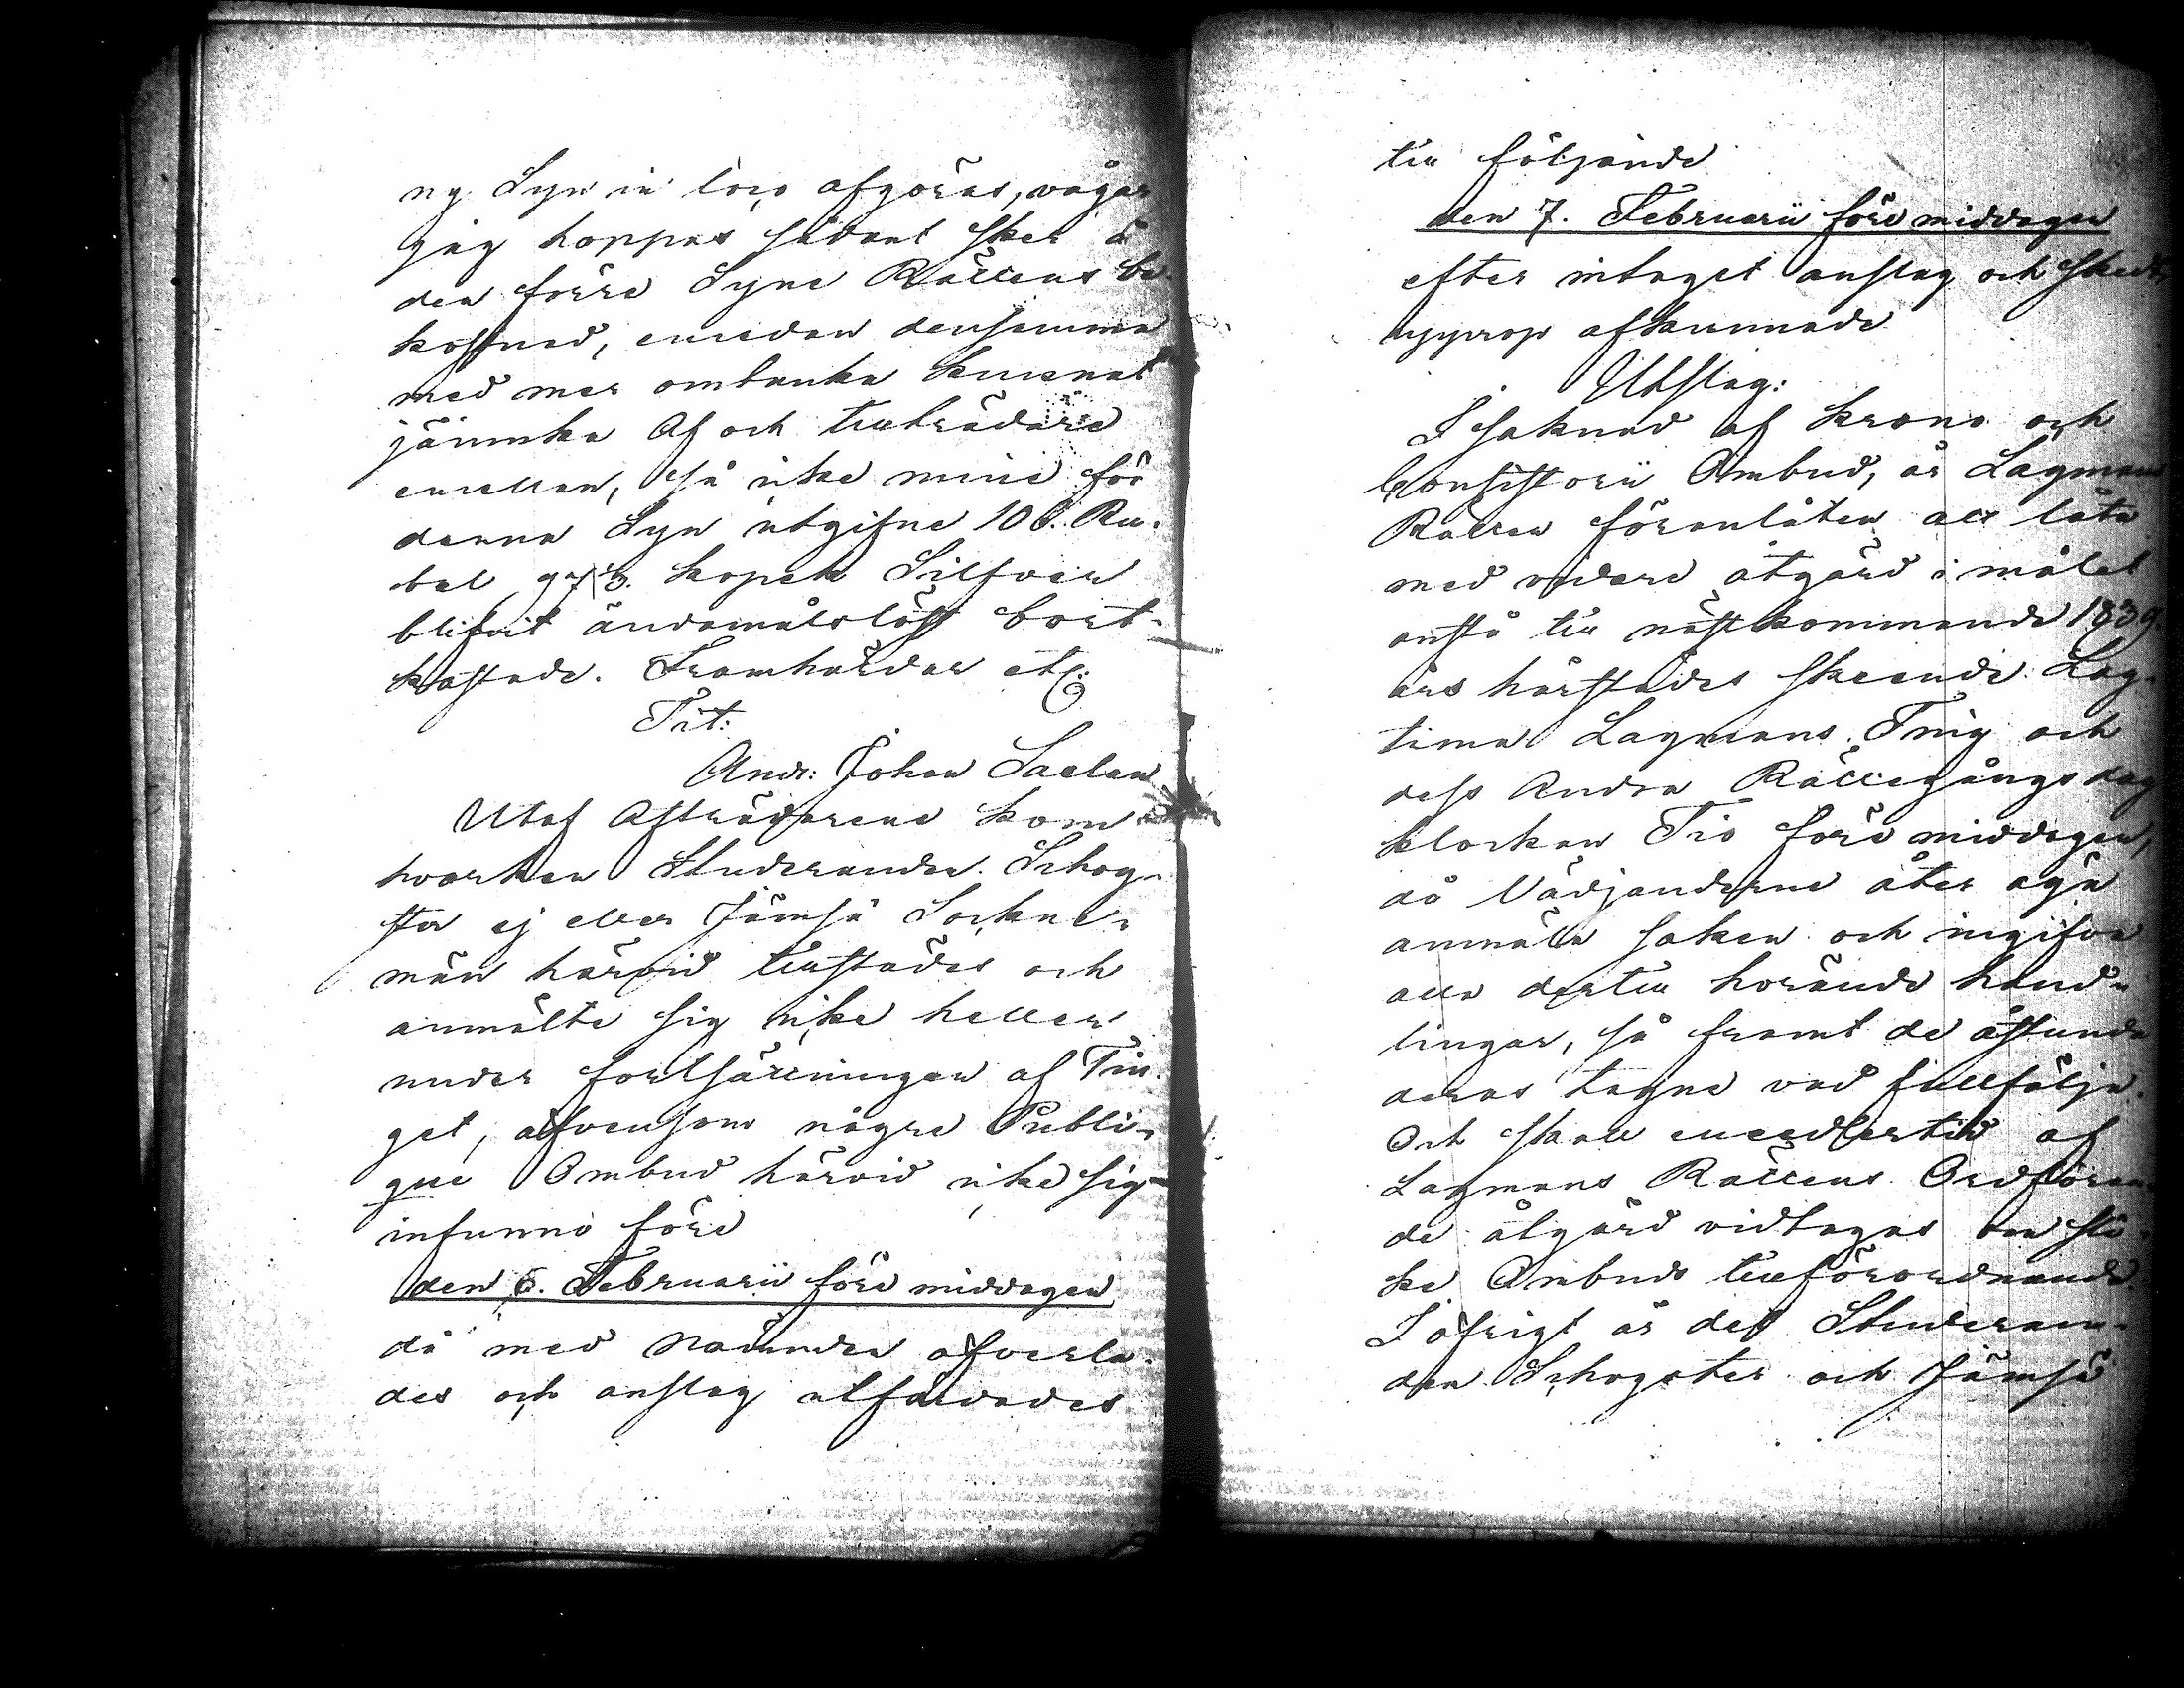 ny Syn in loco afgöras, vågar
jag hoppas sådant sker å
den förre Syne Rättens be
kostnad, emedan densamma
med mer omtanka kunnat
jämnka Af och tillträdare
emellan, så icke mine för
denna Syn utgifne 106. Ru-
bel 97 1/3. kopek Silfver
blifvit ändamålslöst bort-
kastade. Framhärdar etc:
Tit:
Andr: Johan Saelan
Utaf Afträdarene kom
hvarken Studeranden Schog-
ster ej eller Jämsä Sockne-
män härvid tillstädes och
anmälte sig icke heller
under fortsättningen af Tin-
get, äfvensom någre Publi-
que Ombud härvid icke sig
infunno före
den 6. Februarii före middagen
då med Nämnden öfverla-
des och anslag utfärdades
till följande
den 7. Februarii före middagen
efter intaget anslag och skedt
upprop afkunnade
Utslag:
I saknad af Krono och
Consistorii Ombud, är Lagmans
Rätten föranlåten att låta
med vidare åtgärd i målet
anstå till nästkommande 1839.
års härstädes skeende Lag-
tima Lagmans Ting och
dess Andra Rättegångsdag
klockan Tio före middagen,
då Vädjanderne åter äga
anmäla saken och ingifva
alla dertill hörande hand-
lingar, så framt de åstunda
deras tagne vad fullfölja.
Och skall emedlertid af
Lagmans Rättens Ordföran
de åtgärd vidtagas om sli-
ke Ombuds tillförordnande.
I öfrigt är det Studeran-
den Schogster och Jämsä